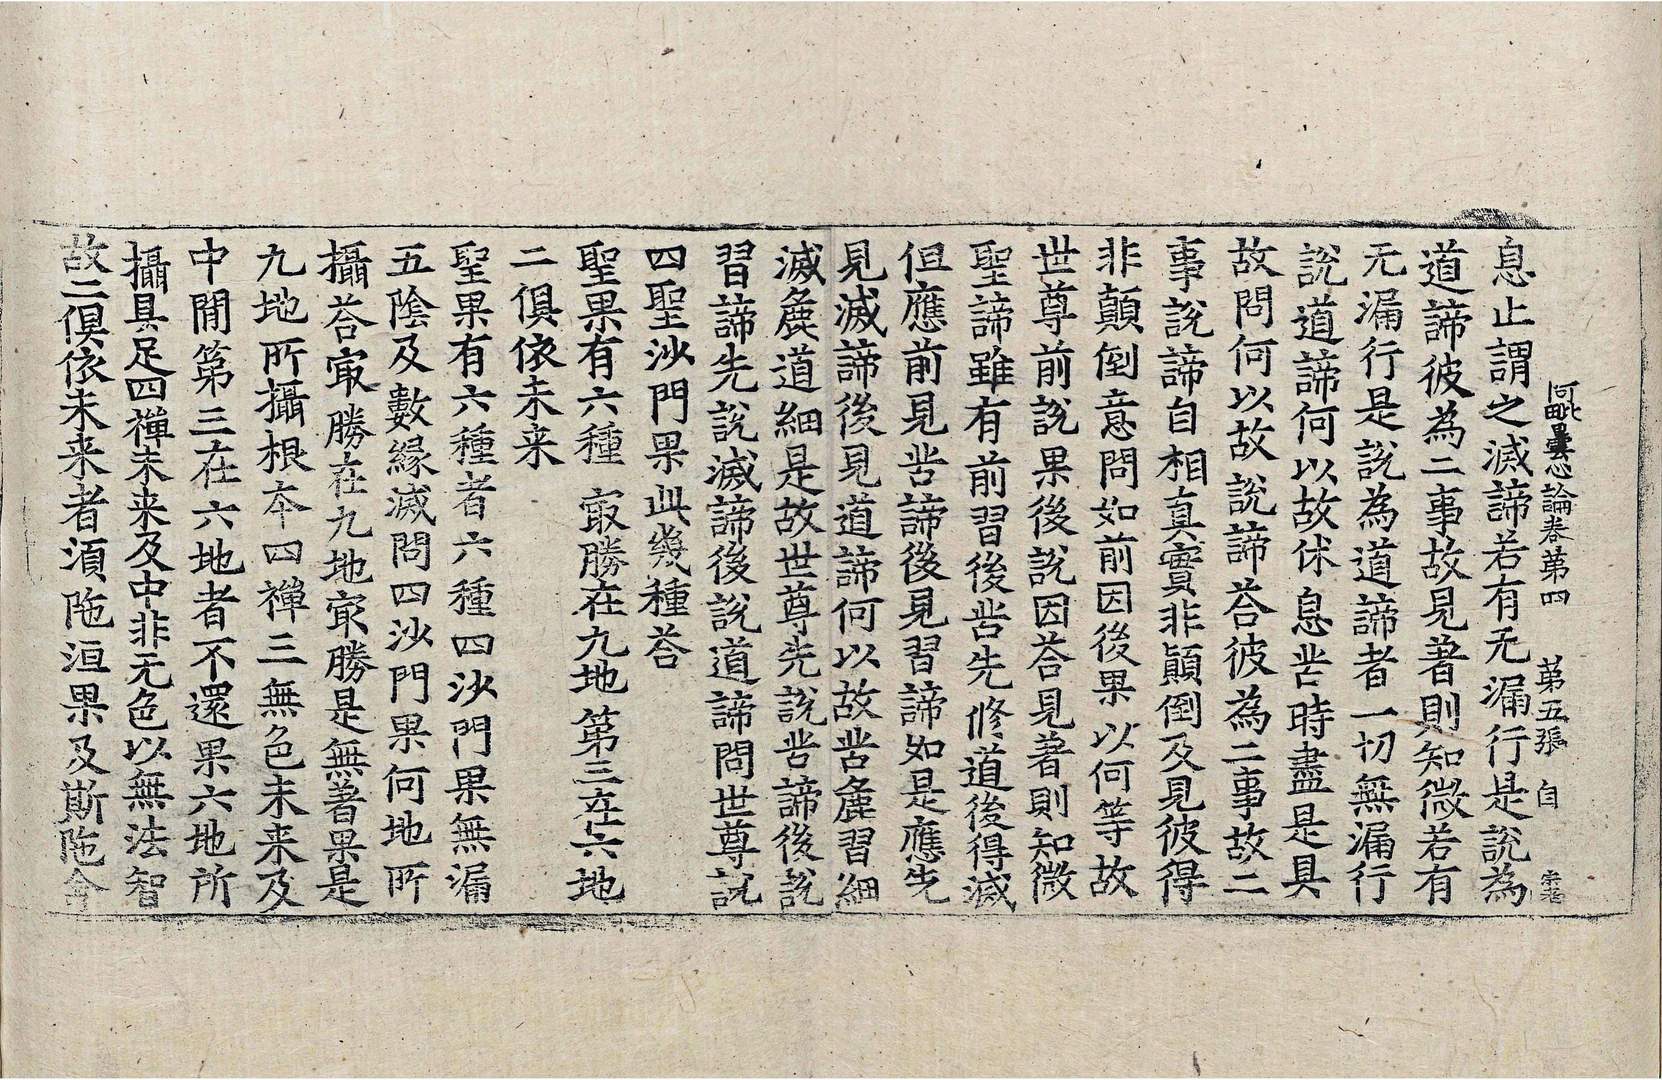 阿毗曇心論卷第四　第五張　自
息止謂之滅諦若有无漏行是說為
道諦彼為二事故見著則知微若有
无漏行是說為道諦者一切無漏行
說道諦何以故休息苦時盡是具
故問何以故說諦荅彼為二事故二
事說諦自相真實非顛倒及見彼得
非顛倒意問如前因後果以何等故
世尊前說果後說因荅見著則知微
聖諦雖有前習後苦先修道後得滅
但應前見苦諦後見習諦如是應先
見滅諦後見道諦何以故苦麁習細
滅麁道細是故世尊先說苦諦後說
習諦先說滅諦後說道諦問世尊說
四聖沙門果此幾種荅
聖果有六種　㝡勝在九地　第三在六地
二俱依未来
聖果有六種者六種四沙門果無漏
五陰及數緣滅問四沙門果何地所
攝荅㝡勝在九地㝡勝是無著果是
九地所攝根本四禪三無色未来及
中間第三在六地者不還果六地所
攝具足四禪未来及中非无色以無法智
故二俱依未来者須陁洹果及斯陁含